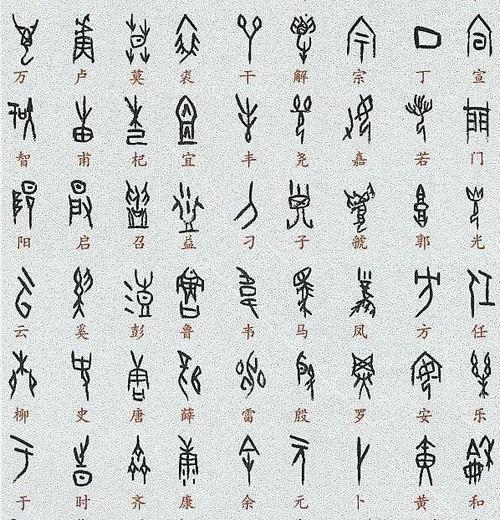 万 卢 莫 裘 干 解 宗 丁 宣
智 甫 杞 宜 丰 尧 嘉 若 门
阳 启 召 益 刁 子 虢 郭 光
云 奚 彭 鲁 韦 马 凤 方 任
柳 史 唐 薛 雷 殷 罗 安 乐
于 时 齐 康 余 元 卜 黄 和